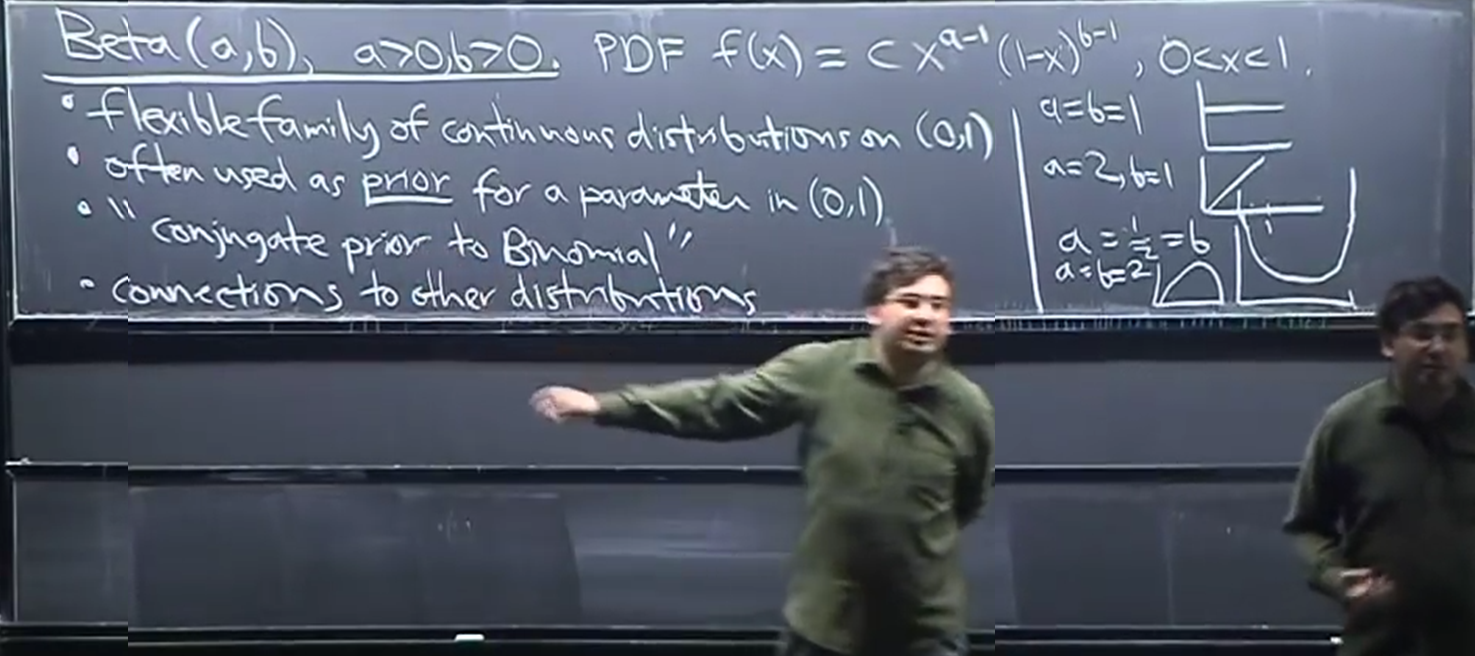 Beta(a,b), a>0, b>0. PDF f(x) = c x^{a-1} (1-x)^{b-1}, 0<x<1.
• flexible family of continuous distributions on (0,1)
• often used as prior for a parameter in (0,1)
• "conjugate prior to Binomial"
• connections to other distributions
a=b=1
a=2, b=1
a=1/2=b
a=b=2